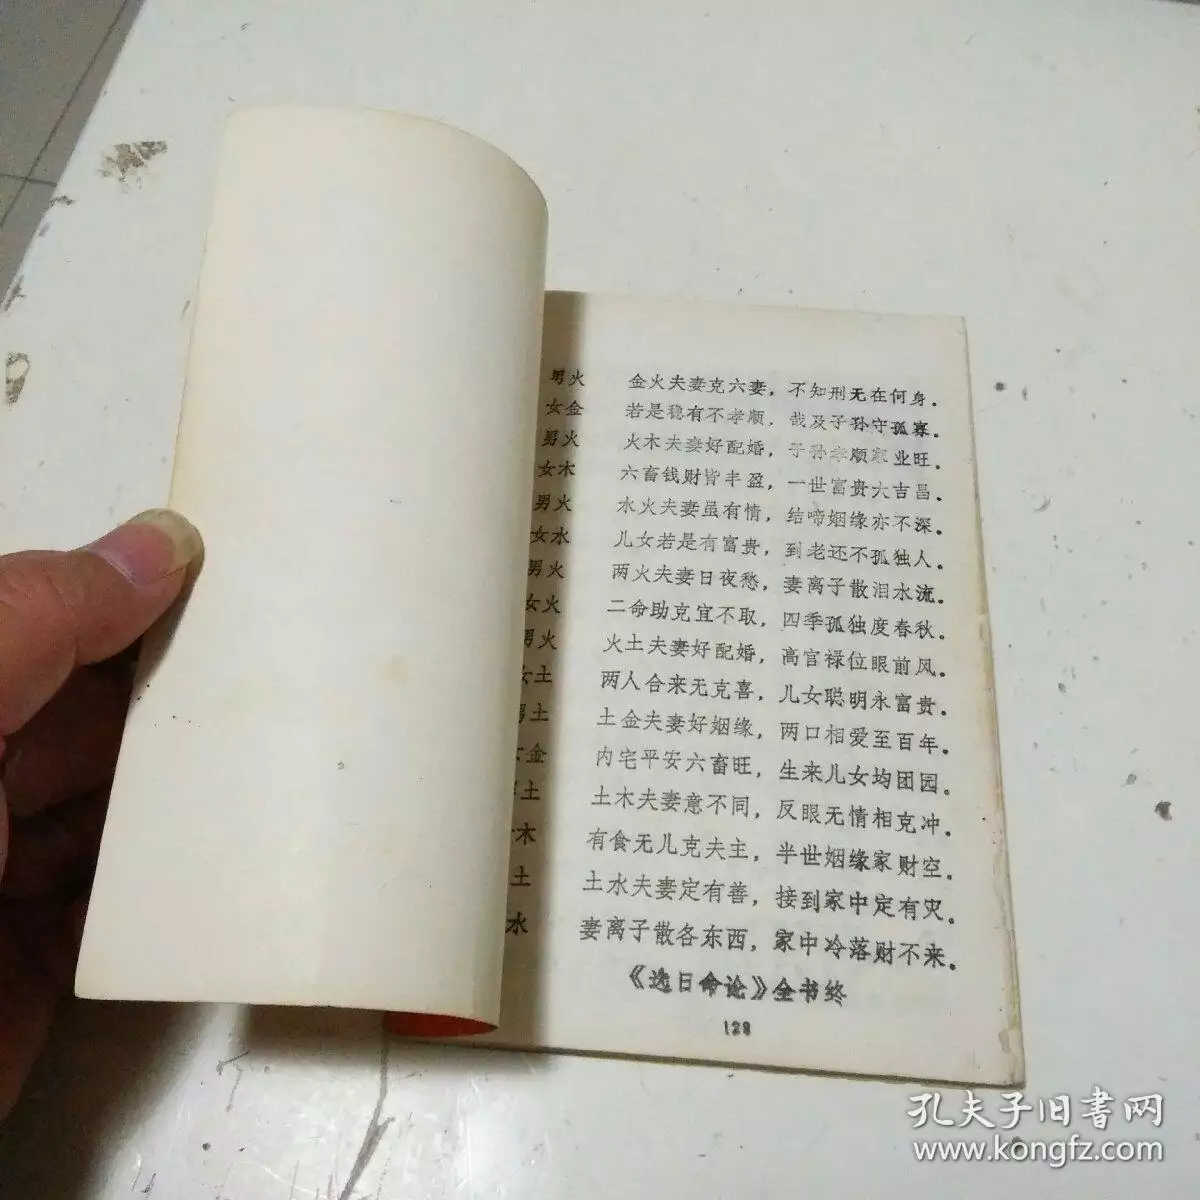 男火 金火夫妻克六妻，不知刑无在何身。
女金 若是稳有不孝顺，哉及子孙守孤寡。
男火 火木夫妻好配婚，子孙孝顺家业旺。
女木 六畜钱财皆丰盈，一世富贵大吉昌。
男火 水火夫妻虽有情，结啼姻缘亦不深。
女水 儿女若是有富贵，到老还不孤独人。
男火 两火夫妻日夜愁，妻离子散泪水流。
女火 二命助克宜不取，四季孤独度春秋。
男火 火土夫妻好配婚，高官禄位眼前风。
女土 两人合来无克喜，儿女聪明永富贵。
男土 土金夫妻好姻缘，两口相爱至百年。
女金 内宅平安六畜旺，生来儿女均团园。
土 土木夫妻意不同，反眼无情相克冲。
木 有食无儿克夫主，半世姻缘家财空。
土 土水夫妻定有善，接到家中定有灾。
水 妻离子散各东西，家中冷落财不来。
《选日命论》全书终
128
孔夫子旧書网
www.kongfz.com